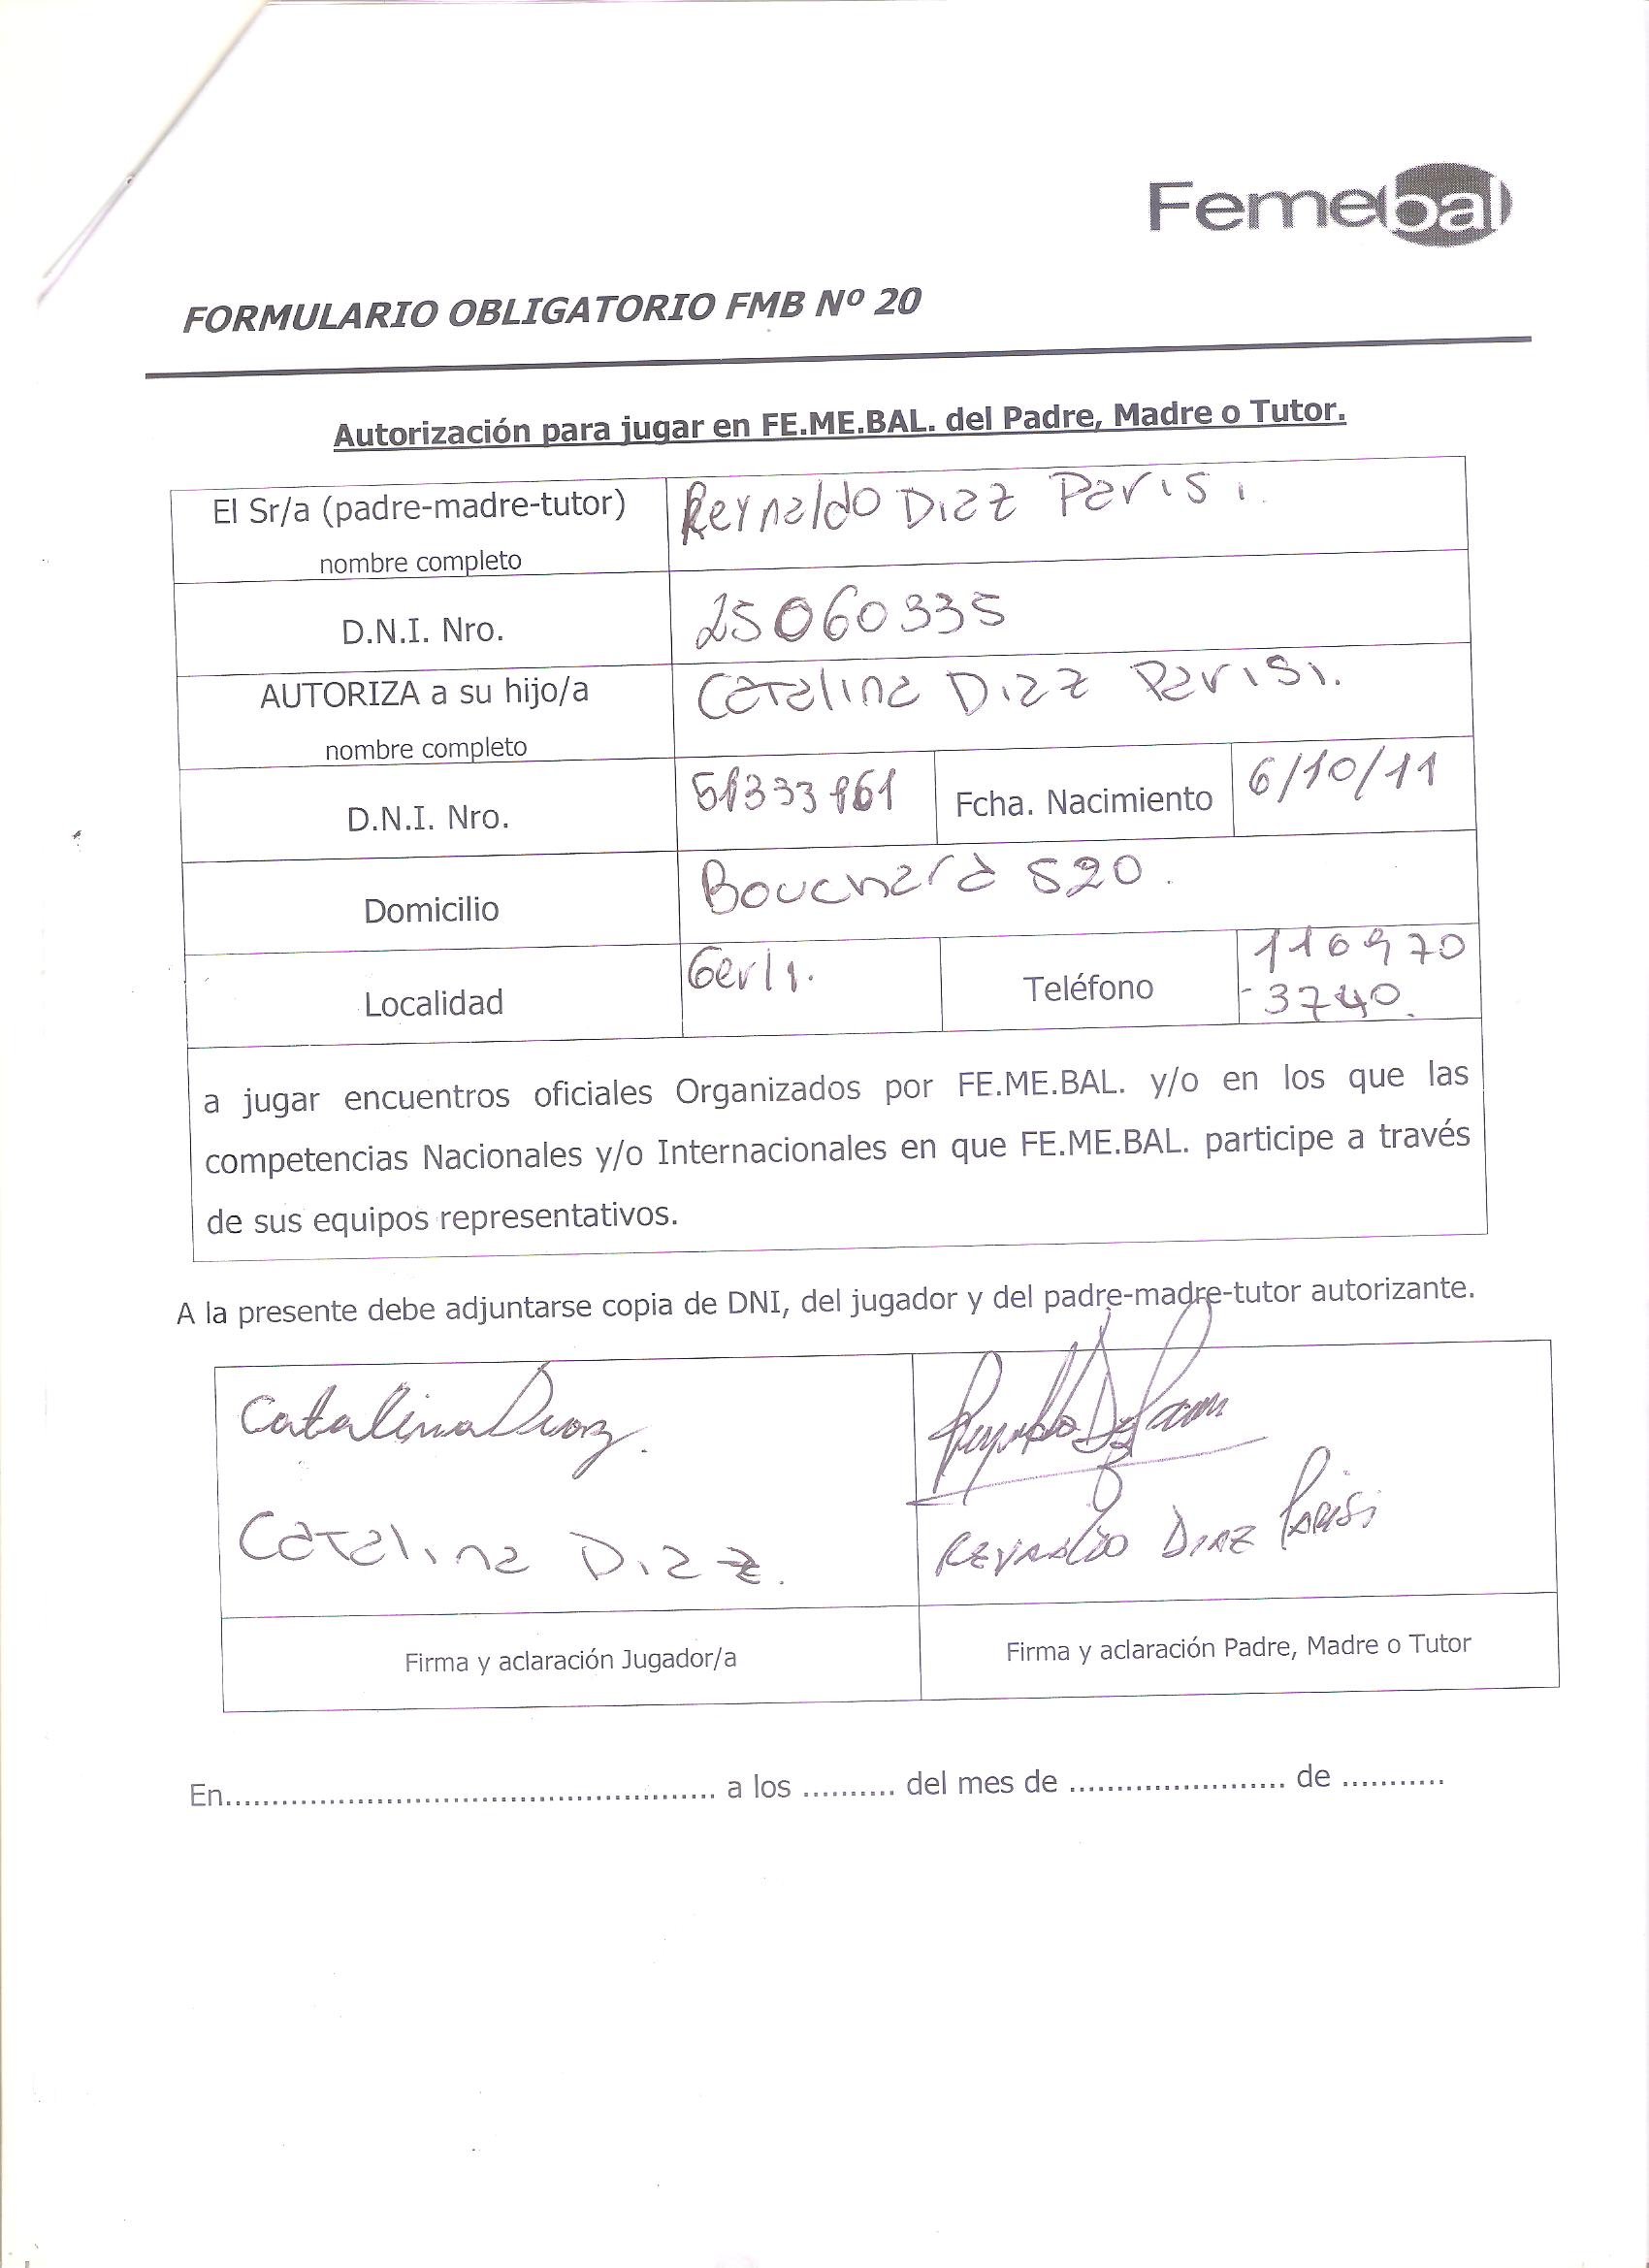 Femebal
FORMULARIO OBLIGATORIO FMB Nº 20
Autorización para jugar en FE.ME.BAL. del Padre, Madre o Tutor.
El Sr/a (padre-madre-tutor) Reynaldo Diaz Parisi.
nombre completo
D.N.I. Nro. 25060335
AUTORIZA a su hijo/a Catalina Diaz Parisi.
nombre completo
D.N.I. Nro. Fcha. Nacimiento 6/10/11
Domicilio Bouchard 520.
Localidad Gerli. Teléfono 116970
-3740.
a jugar encuentros oficiales Organizados por FE.ME.BAL. y/o en los que las
competencias Nacionales y/o Internacionales en que FE.ME.BAL. participe a través
de sus equipos representativos.
A la presente debe adjuntarse copia de DNI, del jugador y del padre-madre-tutor autorizante.
Catalina Diaz. Reynaldo Diaz Parisi
Catalina Diaz. REYNALDO DIAZ PARISi
Firma y aclaración Jugador/a Firma y aclaración Padre, Madre o Tutor
En.................................................... a los .......... del mes de ....................... de ...........